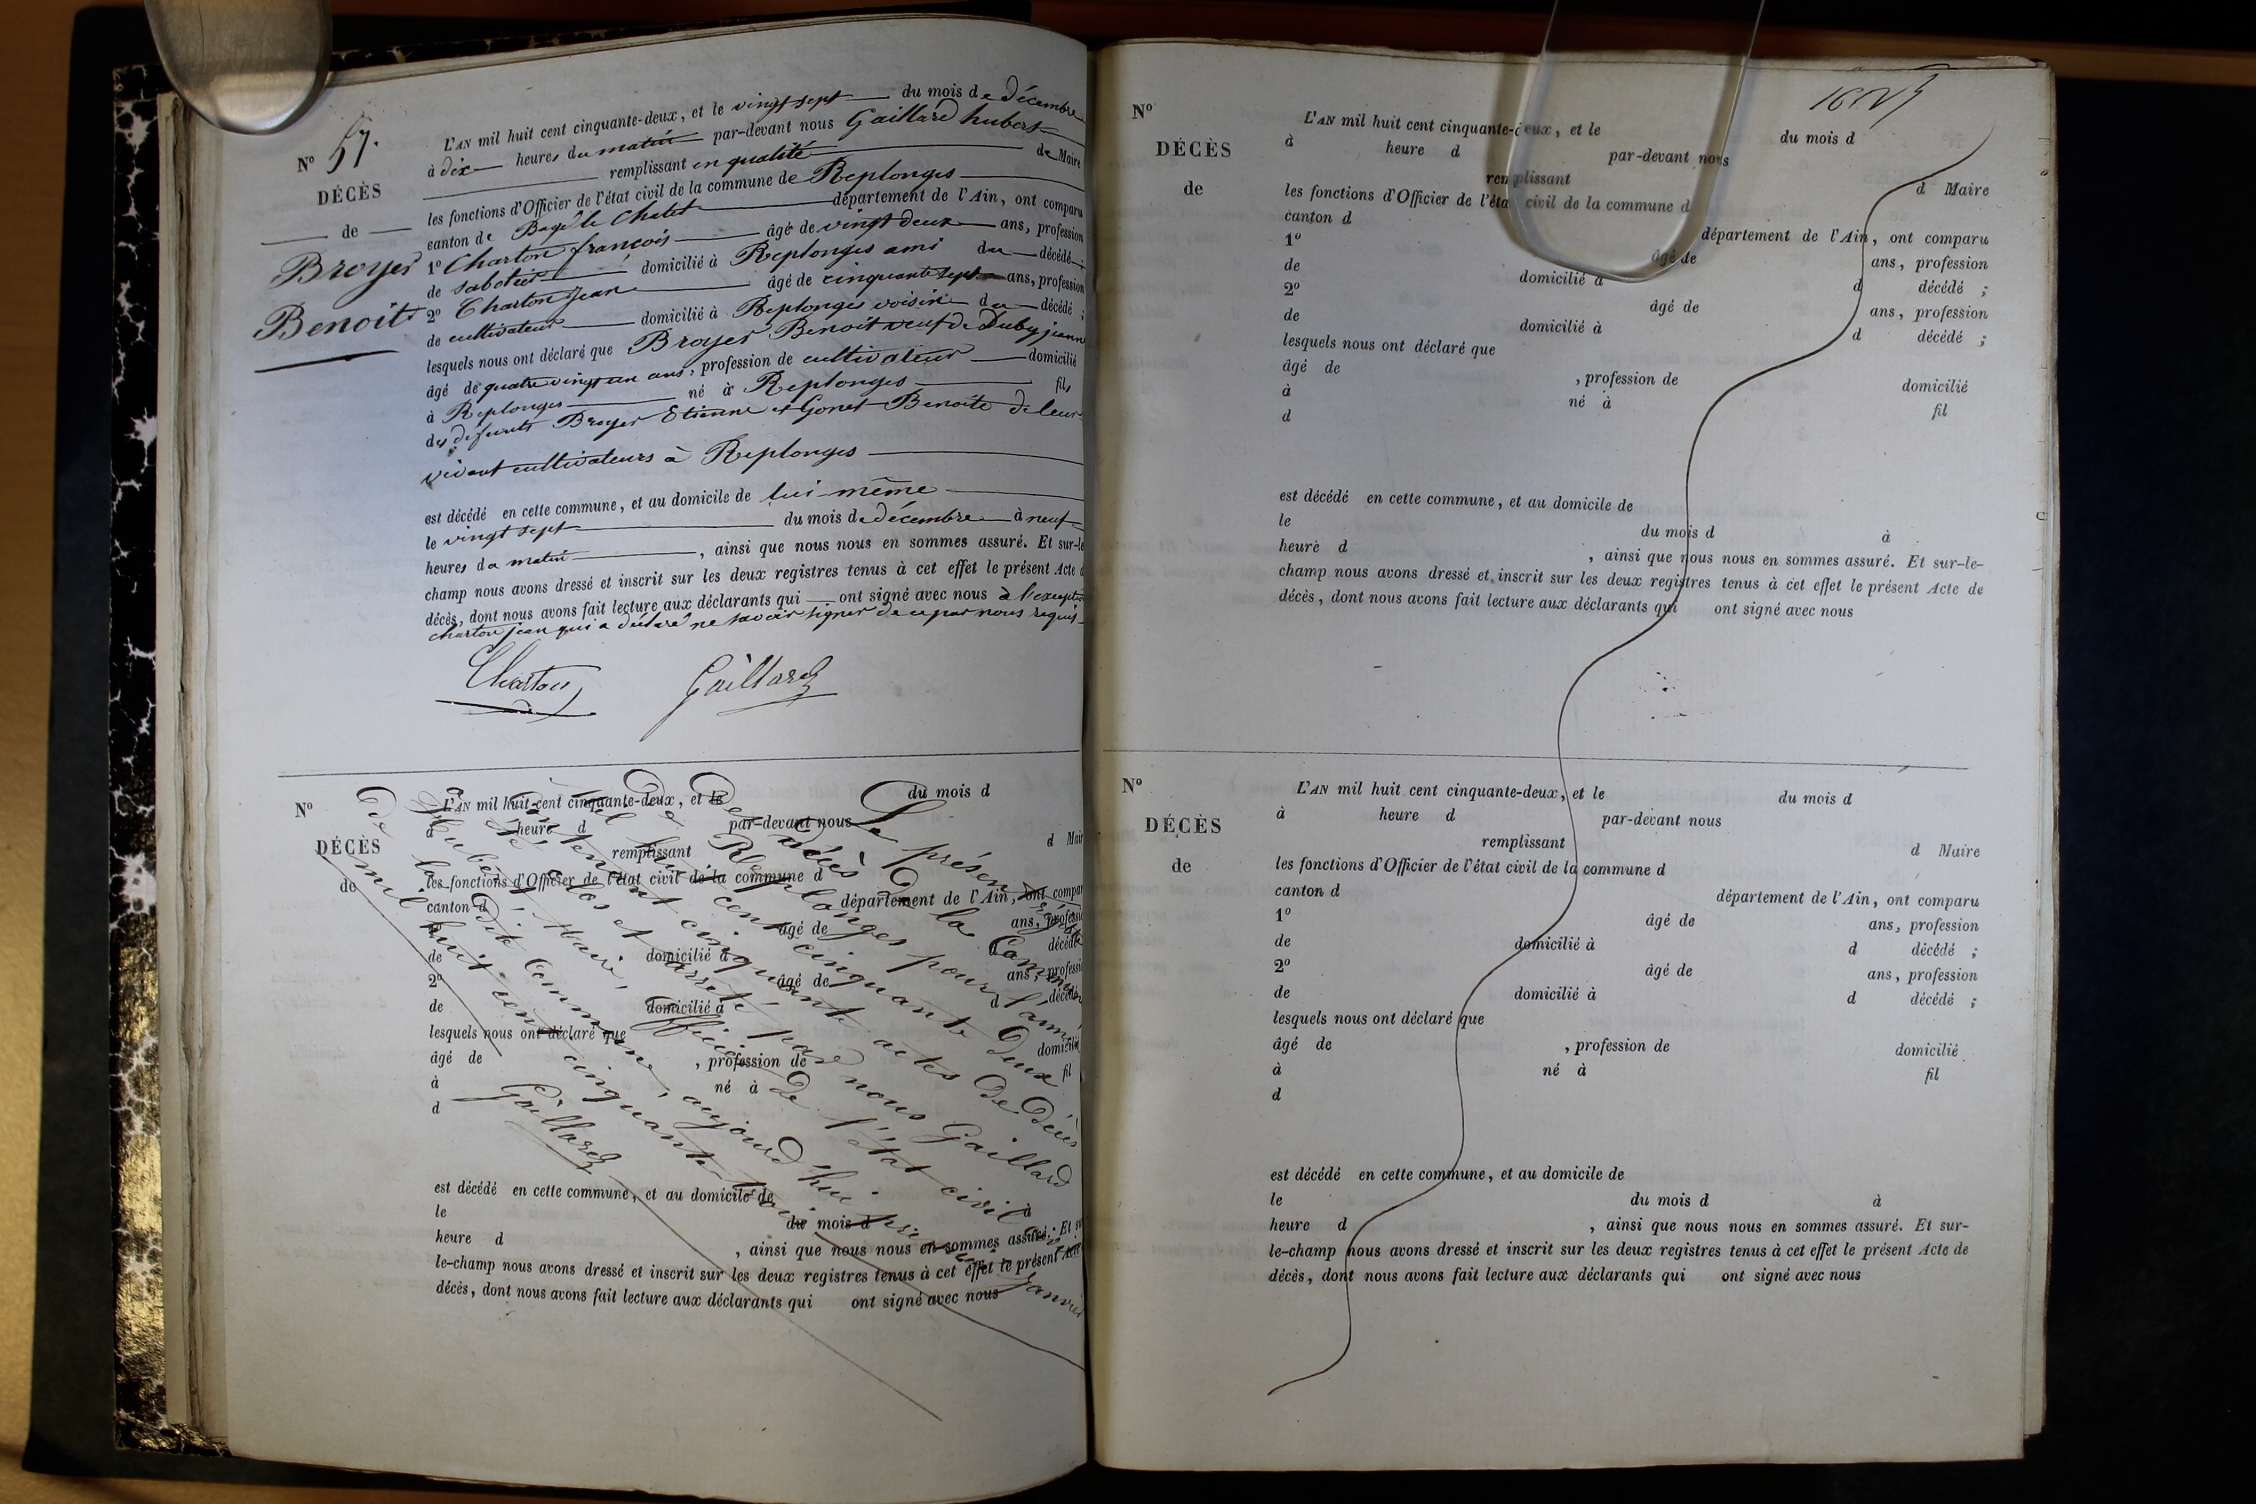 N° 57.
DÉCÈS
de
Broyer
Benoit
L'AN mil huit cent cinquante-deux, et le vingt sept du mois de décembre
à dix heures du matin par-devant nous Gaillard hubert
remplissant en qualité de Maire
les fonctions d'Officier de l'état civil de la commune de Replonges
canton de Bagé le Chatel département de l'Ain, ont comparu
1° Charton françois âgé de vingt deux ans, profession
de sabotier domicilié à Replonges ami du décédé ;
2° Charton Jean âgé de cinquante sept ans, profession
de cultivateur domicilié à Replonges voisin du décédé ;
lesquels nous ont déclaré que Broyer Benoit veuf de Duby jeanne
âgé de quatre vingt un ans, profession de cultivateur domicilié
à Replonges né à Replonges fils
des défunts Broyer Etienne et Gonet Benoite de leur
vivant cultivateurs à Replonges
est décédé en cette commune, et au domicile de lui même
le vingt sept du mois de décembre à neuf
heures du matin, ainsi que nous nous en sommes assuré. Et sur-le
champ nous avons dressé et inscrit sur les deux registres tenus à cet effet le présent Acte d
décès, dont nous avons fait lecture aux déclarants qui ont signé avec nous à l'exception
charton jean qui a déclaré ne savoir signer de ce par nous requis
Charton Gaillard
N°
DÉCÈS
de
L'AN mil huit cent cinquante-deux, et le du mois d
à heure d par-devant nous
remplissant d Mair
les fonctions d'Officier de l'état civil de la commune d
canton d département de l'Ain, ont compar
1° âgé de ans, professi
de domicilié à d décédé
2° âgé de ans, professi
de domicilié à d décédé
lesquels nous ont déclaré que
âgé de , profession de domicilié
à né à fil
d
est décédé en cette commune, et au domicile de
le du mois d à
heure d , ainsi que nous nous en sommes assuré. Et su
le-champ nous avons dressé et inscrit sur les deux registres tenus à cet effet le présent Acte
décès, dont nous avons fait lecture aux déclarants qui ont signé avec nous
Le présent registre
Des décès de la Commune
De Replonges pour l'année
mil huit cent cinquante Deux
Contenant cinquante actes De Décès
a été clos et arrêté par nous Gaillard
Hubert, Maire, Officier De l'état civil
De la Dite Commune, aujourd'hui Janvier
mil huit cent cinquante trois
Gaillard
N°
DÉCÈS
de
L'AN mil huit cent cinquante-deux, et le du mois d
à heure d par-devant nous
remplissant d Maire
les fonctions d'Officier de l'état civil de la commune d
canton d département de l'Ain, ont comparu
1° âgé de ans, profession
de domicilié à d décédé ;
2° âgé de ans, profession
de domicilié à d décédé ;
lesquels nous ont déclaré que
âgé de , profession de domicilié
à né à fil
d
est décédé en cette commune, et au domicile de
le du mois d à
heure d , ainsi que nous nous en sommes assuré. Et sur-le-
champ nous avons dressé et inscrit sur les deux registres tenus à cet effet le présent Acte de
décès, dont nous avons fait lecture aux déclarants qui ont signé avec nous
N°
DÉCÈS
de
L'AN mil huit cent cinquante-deux, et le du mois d
à heure d par-devant nous
remplissant d Maire
les fonctions d'Officier de l'état civil de la commune d
canton d département de l'Ain, ont comparu
1° âgé de ans, profession
de domicilié à d décédé ;
2° âgé de ans, profession
de domicilié à d décédé ;
lesquels nous ont déclaré que
âgé de , profession de domicilié
à né à fil
d
est décédé en cette commune, et au domicile de
le du mois d à
heure d , ainsi que nous nous en sommes assuré. Et sur-
le-champ nous avons dressé et inscrit sur les deux registres tenus à cet effet le présent Acte de
décès, dont nous avons fait lecture aux déclarants qui ont signé avec nous